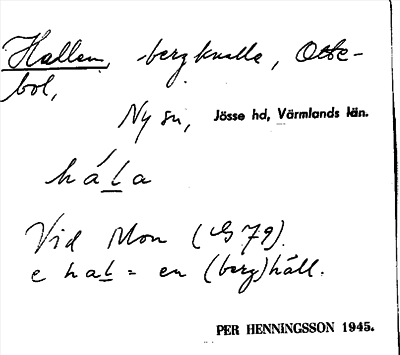 Hallen, bergknalle, Otte-
bol,
Ny sn, Jösse hd, Värmlands län.
hála
Vid Mon (G 79).
e hal = en (berg)häll.
PER HENNINGSSON 1945.